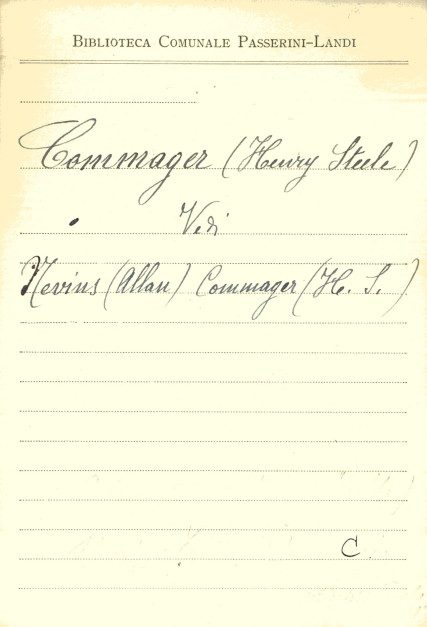 BIBLIOTECA COMUNALE PASSERINI-LANDI
Commager (Henry Steele)
Vedi
Nevins (Allan) Commager (H. S.)
C